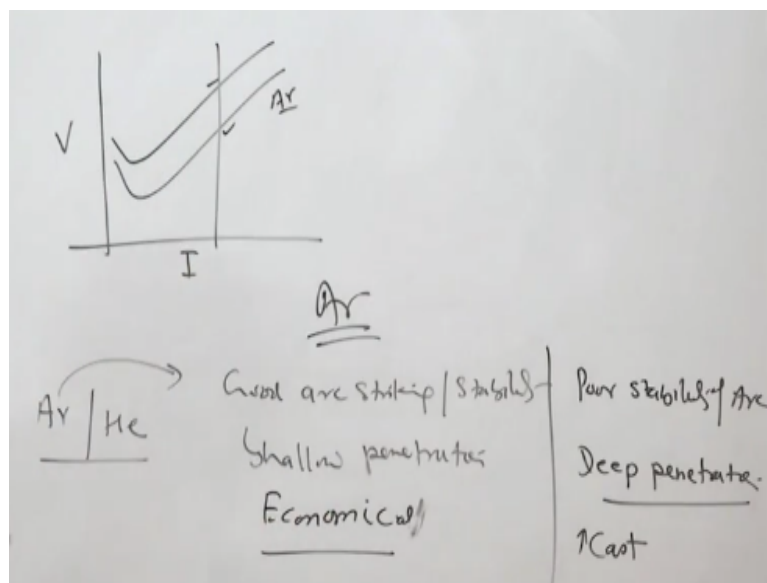 V
Ar
I
Ar
Ar / He
Good arc striking / Stability
Shallow penetration
Economical
Poor stability of Arc
Deep penetration.
↑Cost